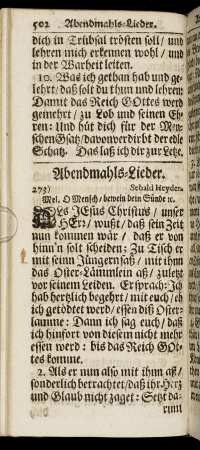 502 Abendmahls-Lieder.
dich in Trübsal trösten soll/ und
lehren mich erkennen wohl / und
in der Warheit leiten.
10. Was ich gethan hab und ge-
lehrt/ daß solt du thun und lehren/
Damit das Reich GOttes werd
gemehrt / zu Lob und seinen Eh-
ren: Und hüt dich für der Men-
schen Gsatz/ davon verdirbt der edle
Schatz. Das laß ich dir zur Letze.
Abendmahls-Lieder.
273) Sebald Heyden.
Mel. O Mensch / bewein dein Sünde ꝛc.
ALs JEsus Christus / unser
HErr/ wußt/ daß sein Zeit
nun kommen war / daß er von
hinn'n solt scheiden: Zu Tisch er
mit seinn Jüngern saß/ mit ihm
das Oster-Lämmlein aß/ zuletzt
vor seinem Leiden. Er sprach: Ich
hab hertzlich begehrt / mit euch/ eh
ich getödtet werd/ essen diß Oster-
lamme: Dann ich sag euch/ daß
ich hinfort von diesem nicht mehr
essen werd : bis das Reich GOt-
tes komme.
2. Als er nun also mit ihm aß/
sonderlich betrachtet/ daß ihr Hertz
und Glaub nicht zaget: Setzt da-
rum